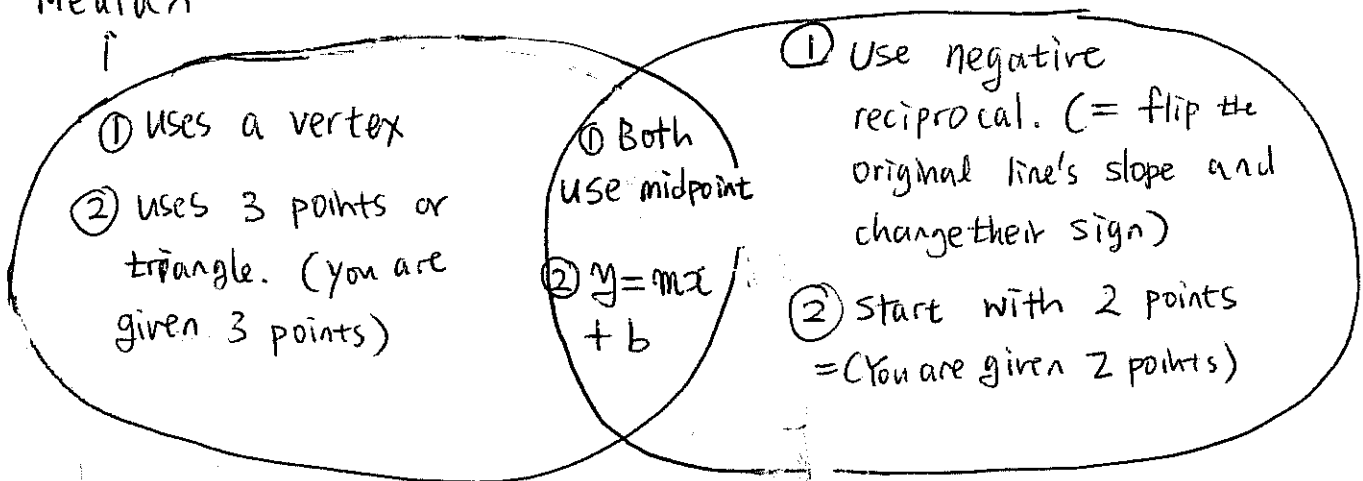 Median
① uses a vertex
② uses 3 points or
triangle. (you are
given 3 points)
① Both
use midpoint
② y=mx
+ b
① Use negative
reciprocal. (= flip the
original line's slope and
change their sign)
② Start with 2 points
=(You are given 2 points)